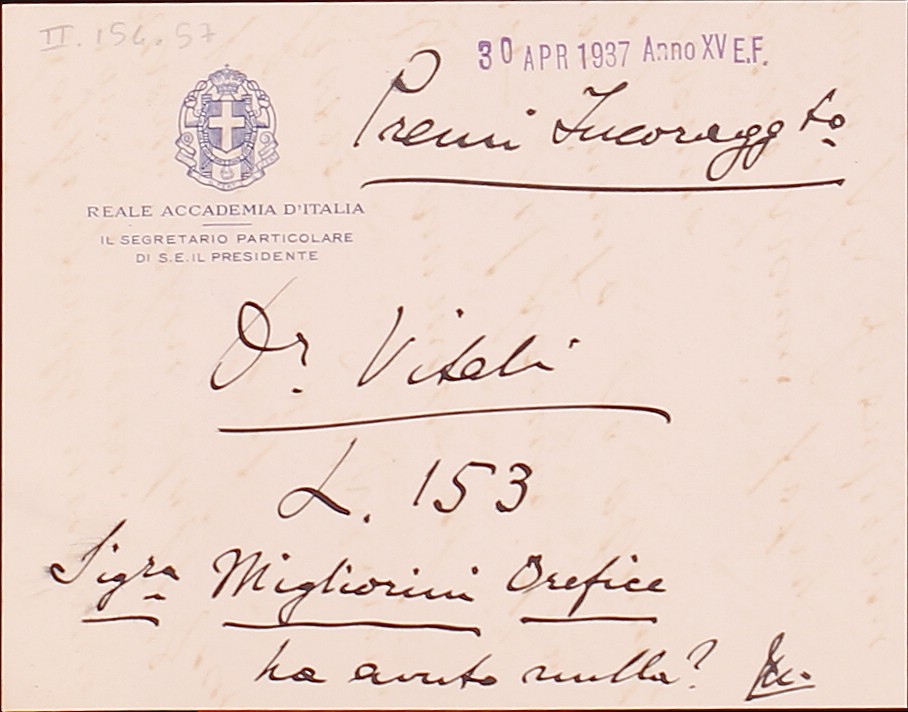 II.154.57
30 APR 1937 Anno XV E.F.
Premi Incoragg.to
REALE ACCADEMIA D'ITALIA
IL SEGRETARIO PARTICOLARE
DI S.E. IL PRESIDENTE
Dr. Vitali
L. 153
Sig.ra Migliorini Orefice
ha avuto nulla?